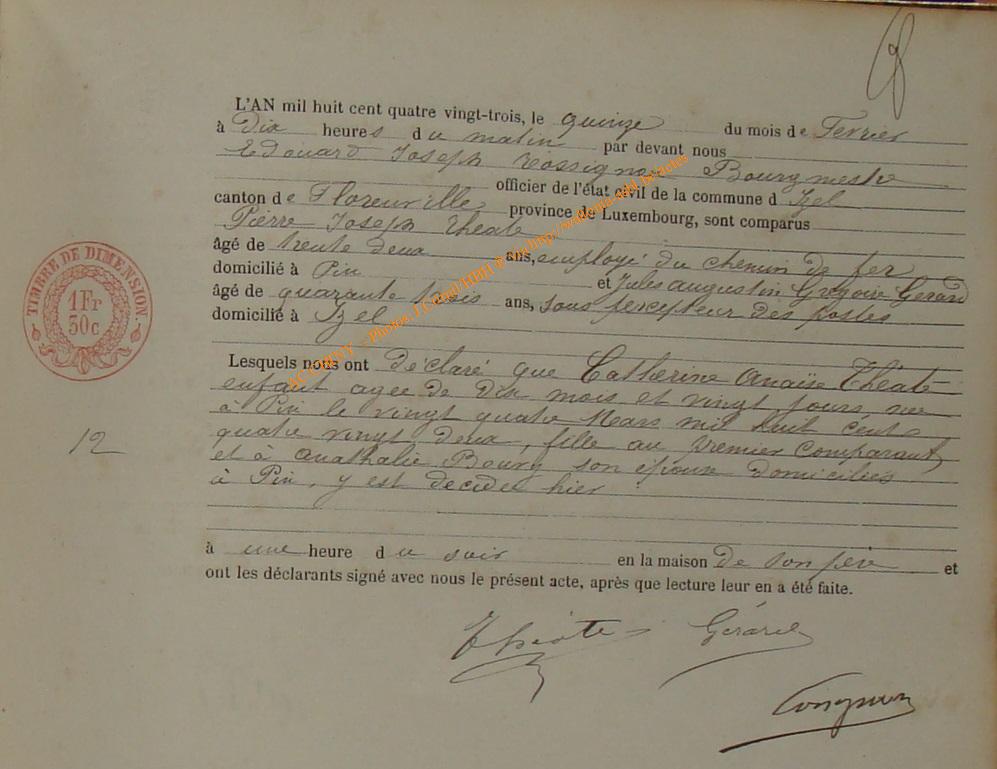 L'AN mil huit cent quatre vingt-trois, le quinze du mois de Fevrier
à Dix heures du matin par devant nous
Edouard Joseph Rossignon Bourgmestre
officier de l'état civil de la commune d Izel
canton de Florenville province de Luxembourg, sont comparus
Pierre Joseph Theate
âgé de trente deux ans, employé du chemin de fer
domicilié à Pin et Jules augustin Grégoire Gerard
âgé de quarante trois ans, sous percepteur des postes
domicilié à Izel
Lesquels nous ont Déclaré que Catherine Anaïse Théate
enfant agee de Dix mois et vingt jours, nee
à Pin le vingt quatre Mars mil huit cent
quatre vingt deux, fille au premier comparant
et à anathalie Bourg son epouse domiciliés
à Pin, y est décédée hier
à une heure du soir en la maison De son père et
ont les déclarants signé avec nous le présent acte, après que lecture leur en a été faite.
Théate Gérard
Rossignon
TIMBRE DE DIMENSION
1 Fr
50 c
12